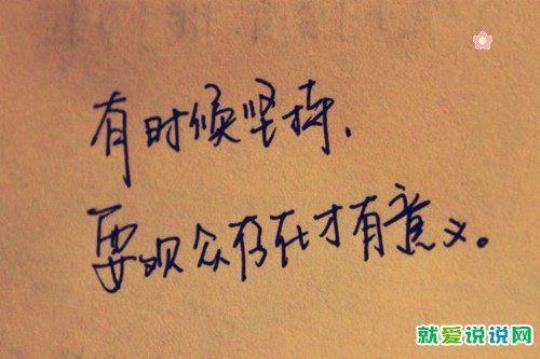 有时候坚持、
要观众存在才有意义。
就爱说说网